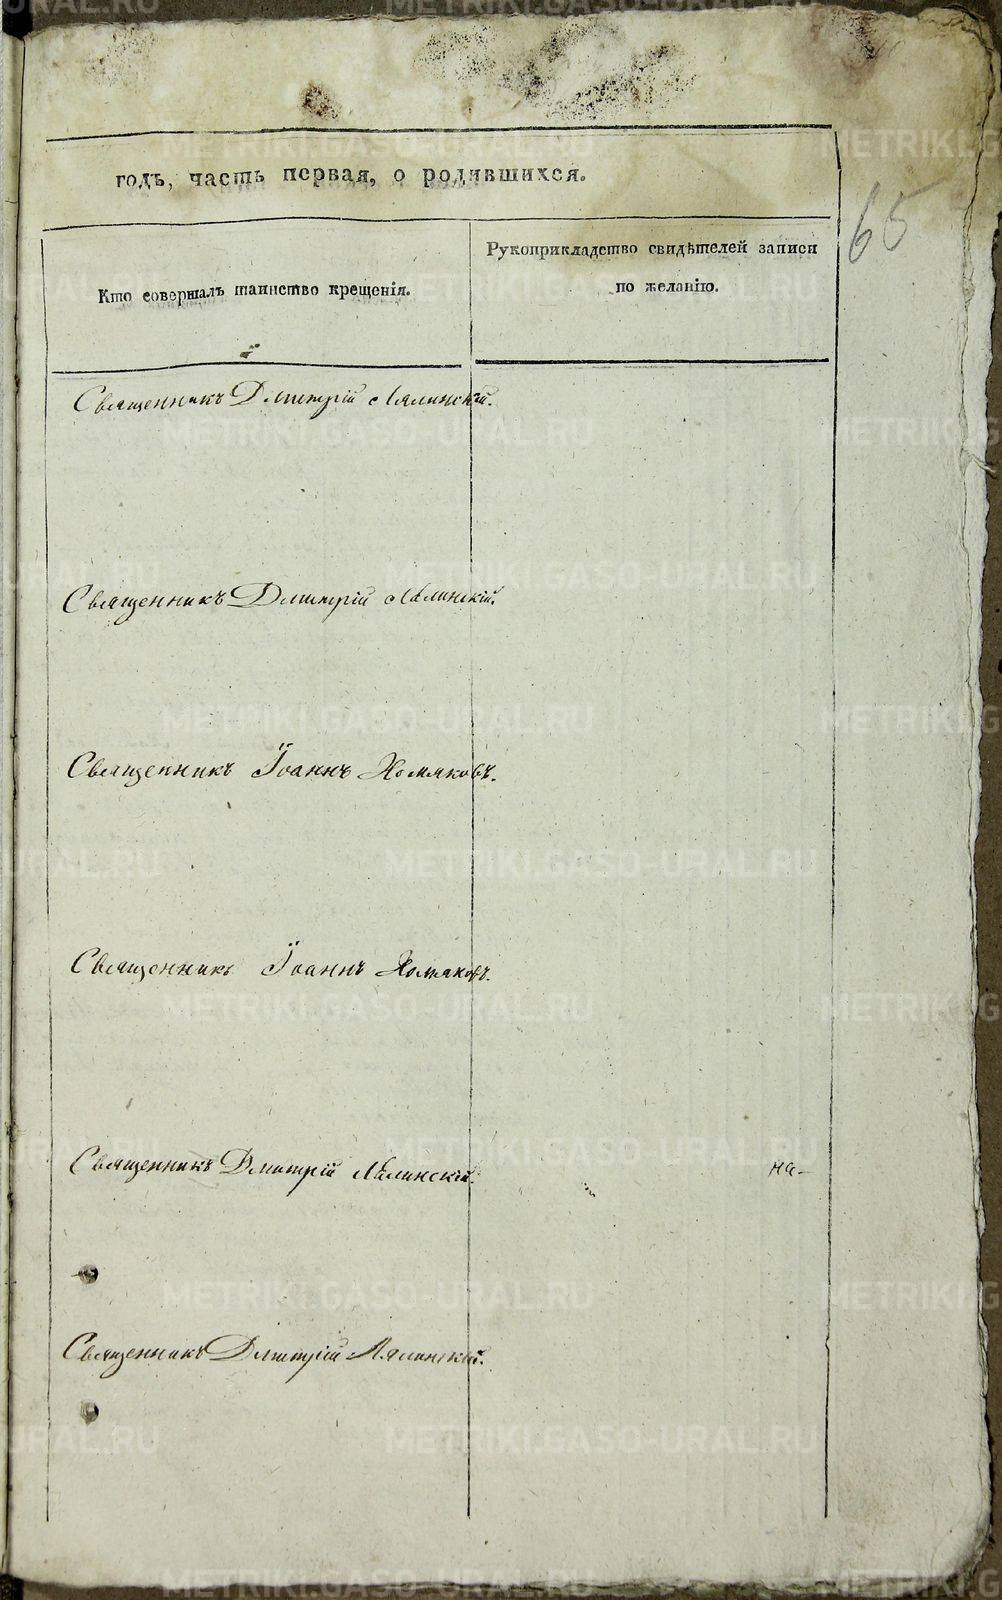 65
годъ, часть первая, о родившихся.
Кто совершалъ таинство крещенія.
Рукоприкладство свидѣтелей записи
по желанію.
Священникъ Дмитрій Лялинскій.
Священникъ Дмитрій Лялинскій.
Священникъ Іоаннъ Хомяковъ.
Священникъ Іоаннъ Хомяковъ.
Священникъ Дмитрій Лялинскій.
на-
Священникъ Дмитрій Лялинскій.
METRIKI.GASO-URAL.RU